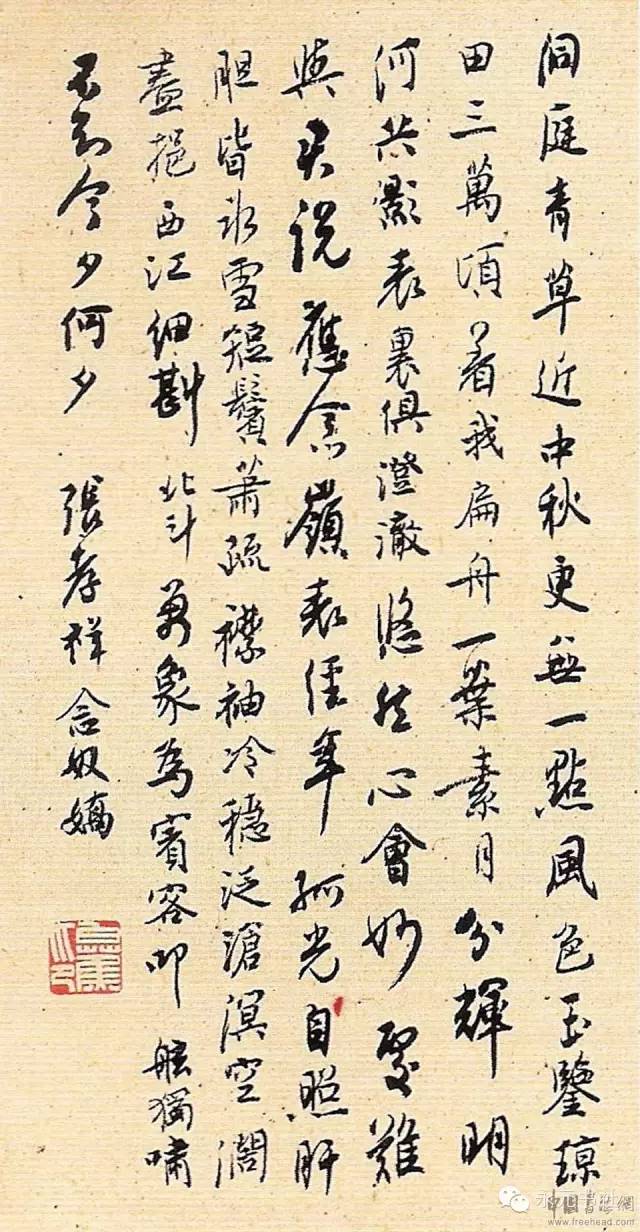 洞庭青草近中秋更無一點風色玉鑒瓊
田三萬頃着我扁舟一葉素月分輝明
河共影表裏俱澄澈悠然心會妙處難
與君説應念嶺表經年孤光自照肝
胆皆冰雪短鬢蕭疏襟袖冷穩泛滄溟空濶
盡挹西江細斟北斗萬象為賓客叩舷獨嘯
不知今夕何夕 張孝祥 念奴嬌
中国書法網
www.freehead.com